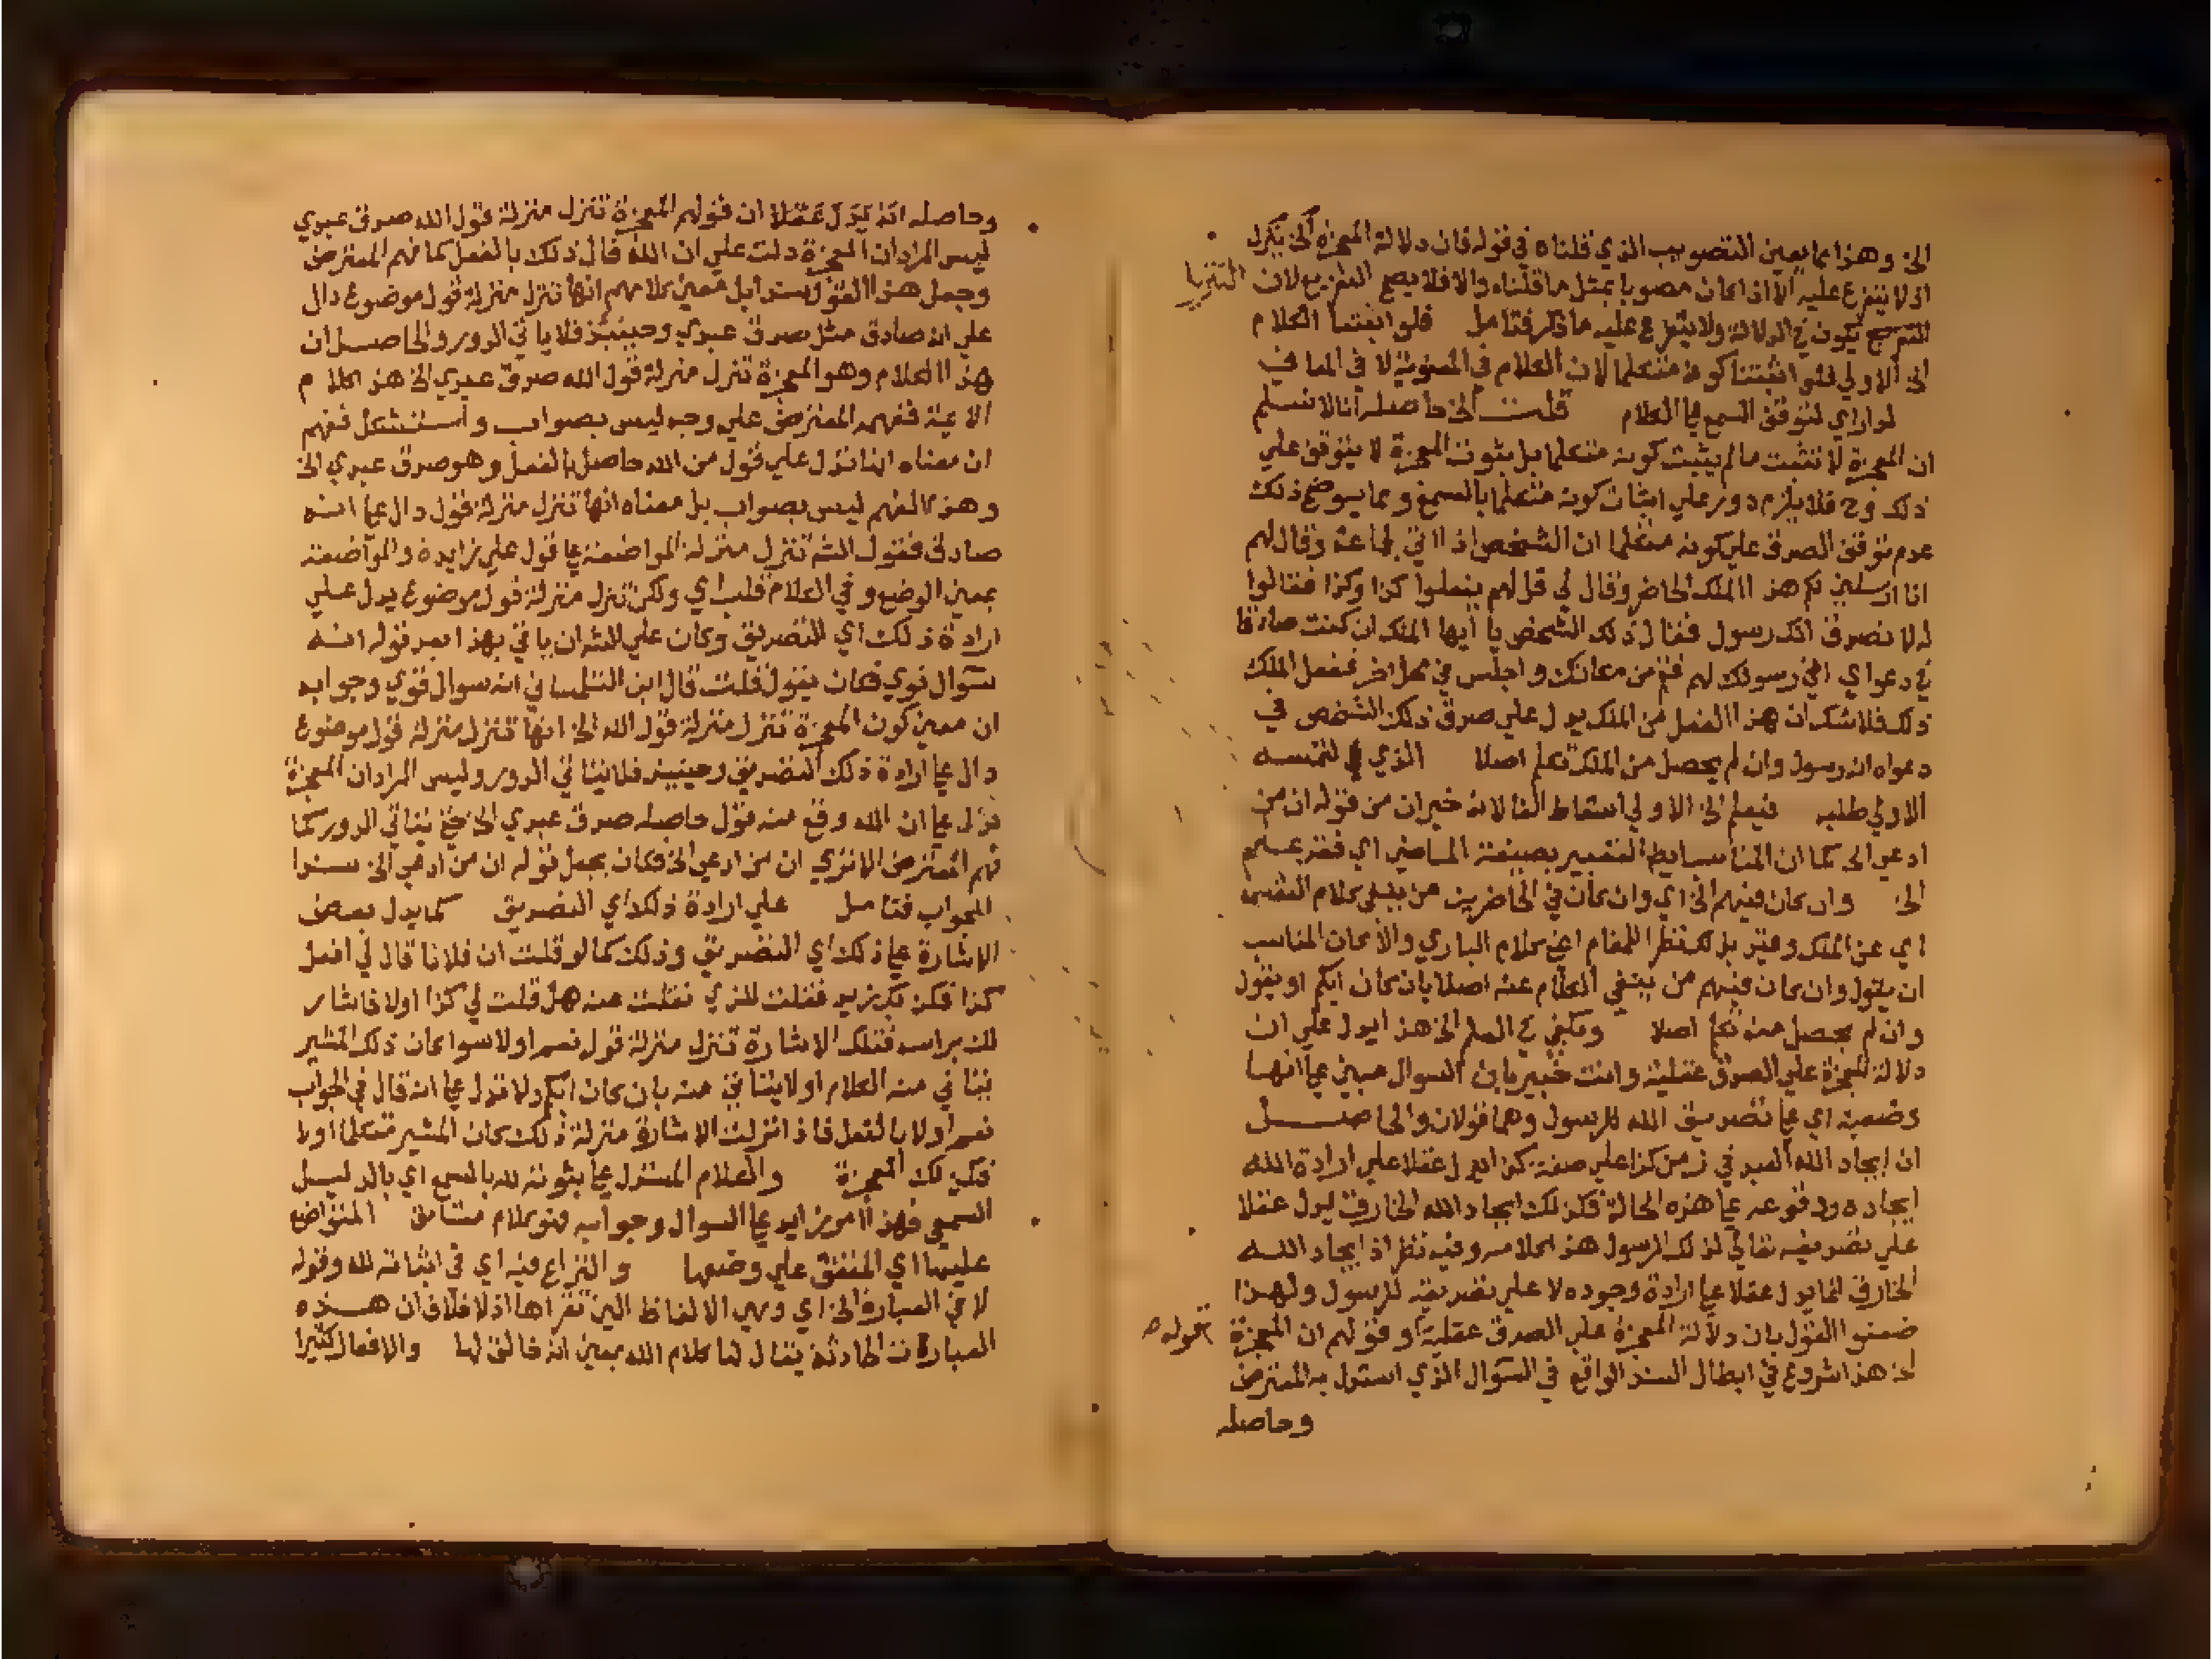 الخ وهذا مما يعين التصويب الذي قلناه في قوله فان دلالة المعجزة الخ
اذ لا يتفرع عليه الا اذا كان مصوبا بمثل ما قلناه والا فلا يصح التفريع لان
يكون في الدلالة ولا يتفرع عليه ما ذكر فتامل فلو اثبتنا الكلام
الخ الاولي فلو اثبتنا كونه متكلما لان الكلام في المعنوية لا في المعاني
لدار اي لتوقف السمع علي الكلام قلت الخ حاصله انا لا نسلم
ان المعجزة لا تثبت ما لم يثبت كونه متكلما بل ثبوت المعجزة لا يتوقف علي
ذلك وح فلا يلزم دور علي اثبات كونه متكلما بالسمع ومما يوضح ذلك
عدم توقف الصدق علي كونه متكلما ان الشخص اذا اتي لجماعة وقال لهم
انا ارسلني لكم هذا الملك الحاضر وقال لي قل لهم يفعلوا كذا وكذا فقالوا
له لا نصدق انك رسول فقال ذلك الشخص يا ايها الملك ان كنت صادقا
في دعواي اني رسولك لهم فقم من مكانك واجلس في محل اخر ففعل الملك
ذلك فلا شك ان هذا الفعل من الملك يدل علي صدق ذلك الشخص في
دعواه انه رسول وان لم يحصل من الملك تكلم اصلا الذي التمسه
الاولي طلبه فيعلم الخ الاولي اسقاط الفا لانه خبر ان من قوله ان من
ادعي الخ كما ان المناسب ايضا التعبير بصيغة الماضي اي فقد علم
الخ وان كان فيهم الخ اي وان كان في الحاضرين من ينفي كلام النفس
اي عن الملك وغيره بل نظرا للمقام اعني كلام الباري والا كان المناسب
ان يقول وان كان فيهم من ينفي الكلام عنه اصلا بان كان ابكم او يقول
وان لم يحصل منه تكلم اصلا ويكفي في العلم الخ هذا يدل علي ان
دلالة المعجزة علي الصدق عقلية وانت خبير بان السوال مبني علي انها
وضعية اي علي تصديق الله للرسول وهما قولان والحاصل
ان ايجاد الله العبد في زمن كذا علي صفة كذا يدل عقلا علي ارادة الله
ايجاده ووقوعه علي هذه الحالة فكذلك ايجاد الله الخارق يدل عقلا
علي تصديقه تعالي لذلك الرسول هذا كلامه وفيه نظر اذ ايجاد الله
الخارق انما يدل عقلا علي ارادة وجوده لا علي تصديقه للرسول ولهذا
ضعفوا القول بان دلالة المعجزة علي الصدق عقلية وقولهم ان المعجزة
قوله
الخ هذا شروع في ابطال السند الواقع في السوال الذي استدل به المعترض
وحاصله
وحاصله انه يدل عقلا ان قولهم المعجزة تنزل منزلة قول الله صدق عبدي
ليس المراد ان المعجزة دلت علي ان الله قال ذلك بالفعل كما فهم المعترض
وجعل هذا القول سندا بل معني كلامهم انها تنزل منزلة قول موضوع دال
علي انه صادق مثل صدق عبدي وحينئذ فلا ياتي الدور والحاصل ان
هذا الكلام وهو المعجزة تنزل منزلة قول الله صدق عبدي الخ هذا كلام
الائمة ففهمه المعترض علي وجه ليس بصواب واستشكل ففهم
ان معناه انها تدل علي قول من الله حاصل بالفعل وهو صدق عبدي الخ
وهذا الفهم ليس بصواب بل معناه انها تنزل منزلة قول دال علي انه
صادق فقول الش تنزل منزلة المواضعة علي قول علي زايدة والمواضعة
بمعني الوضع وفي الكلام قلب اي ولكن تنزل منزلة قول موضوع يدل علي
ارادة ذلك اي التصديق وكان علي الش ان ياتي بهذا بعد قوله انه
سوال قوي فكان يقول قلت قال ابن التلمساني انه سوال قوي وجوابه
ان معني كون المعجزة تنزل منزلة قول الله الخ انها تنزل منزلة قول موضوع
دال علي ارادة ذلك التصديق وحينئذ فلا ياتي الدور وليس المراد ان المعجزة
تدل علي ان الله وقع منه قول حاصله صدق عبدي الخ حتي ياتي الدور كما
فهم المعترض الا تري ان من ادعي الخ فكان يجعل قوله ان من ادعي الخ سندا
للجواب فتامل علي ارادة ذلك اي التصديق كما يدل بعض
الاشارة علي ذلك اي التصديق وذلك كما لو قلت ان فلانا قال لي افعل
كذا فكذبك زيد فقلت للذي نقلت عنه هل قلت لي كذا اولا فاشار
لك براسه فتلك الاشارة تنزل منزلة قول نعم اولا سوا كان ذلك المشير
يتاتي منه الكلام او لا يتاتي منه بان كان ابكم ولا تدل علي انه قال في الجواب
نعم اولا بالفعل فاذا نزلت الاشارة منزلة ذلك كان المشير متكلما اولا
فكذلك المعجزة والكلام المستدل علي ثبوته لله بالسمع اي بالدليل
السمعي فهذا امر زايد علي السوال وجوابه فهو كلام مستانف المتواضع
عليها اي المتفق علي وضعها والنزاع فيه اي في اثباته لله وقوله
لا في العبارة الخ اي وهي الالفاظ التي نقراها اذ لا خلاف ان هذه
العبارات الحادثة يقال لها كلام الله بمعني انه خالق لها والافعال كثيرا